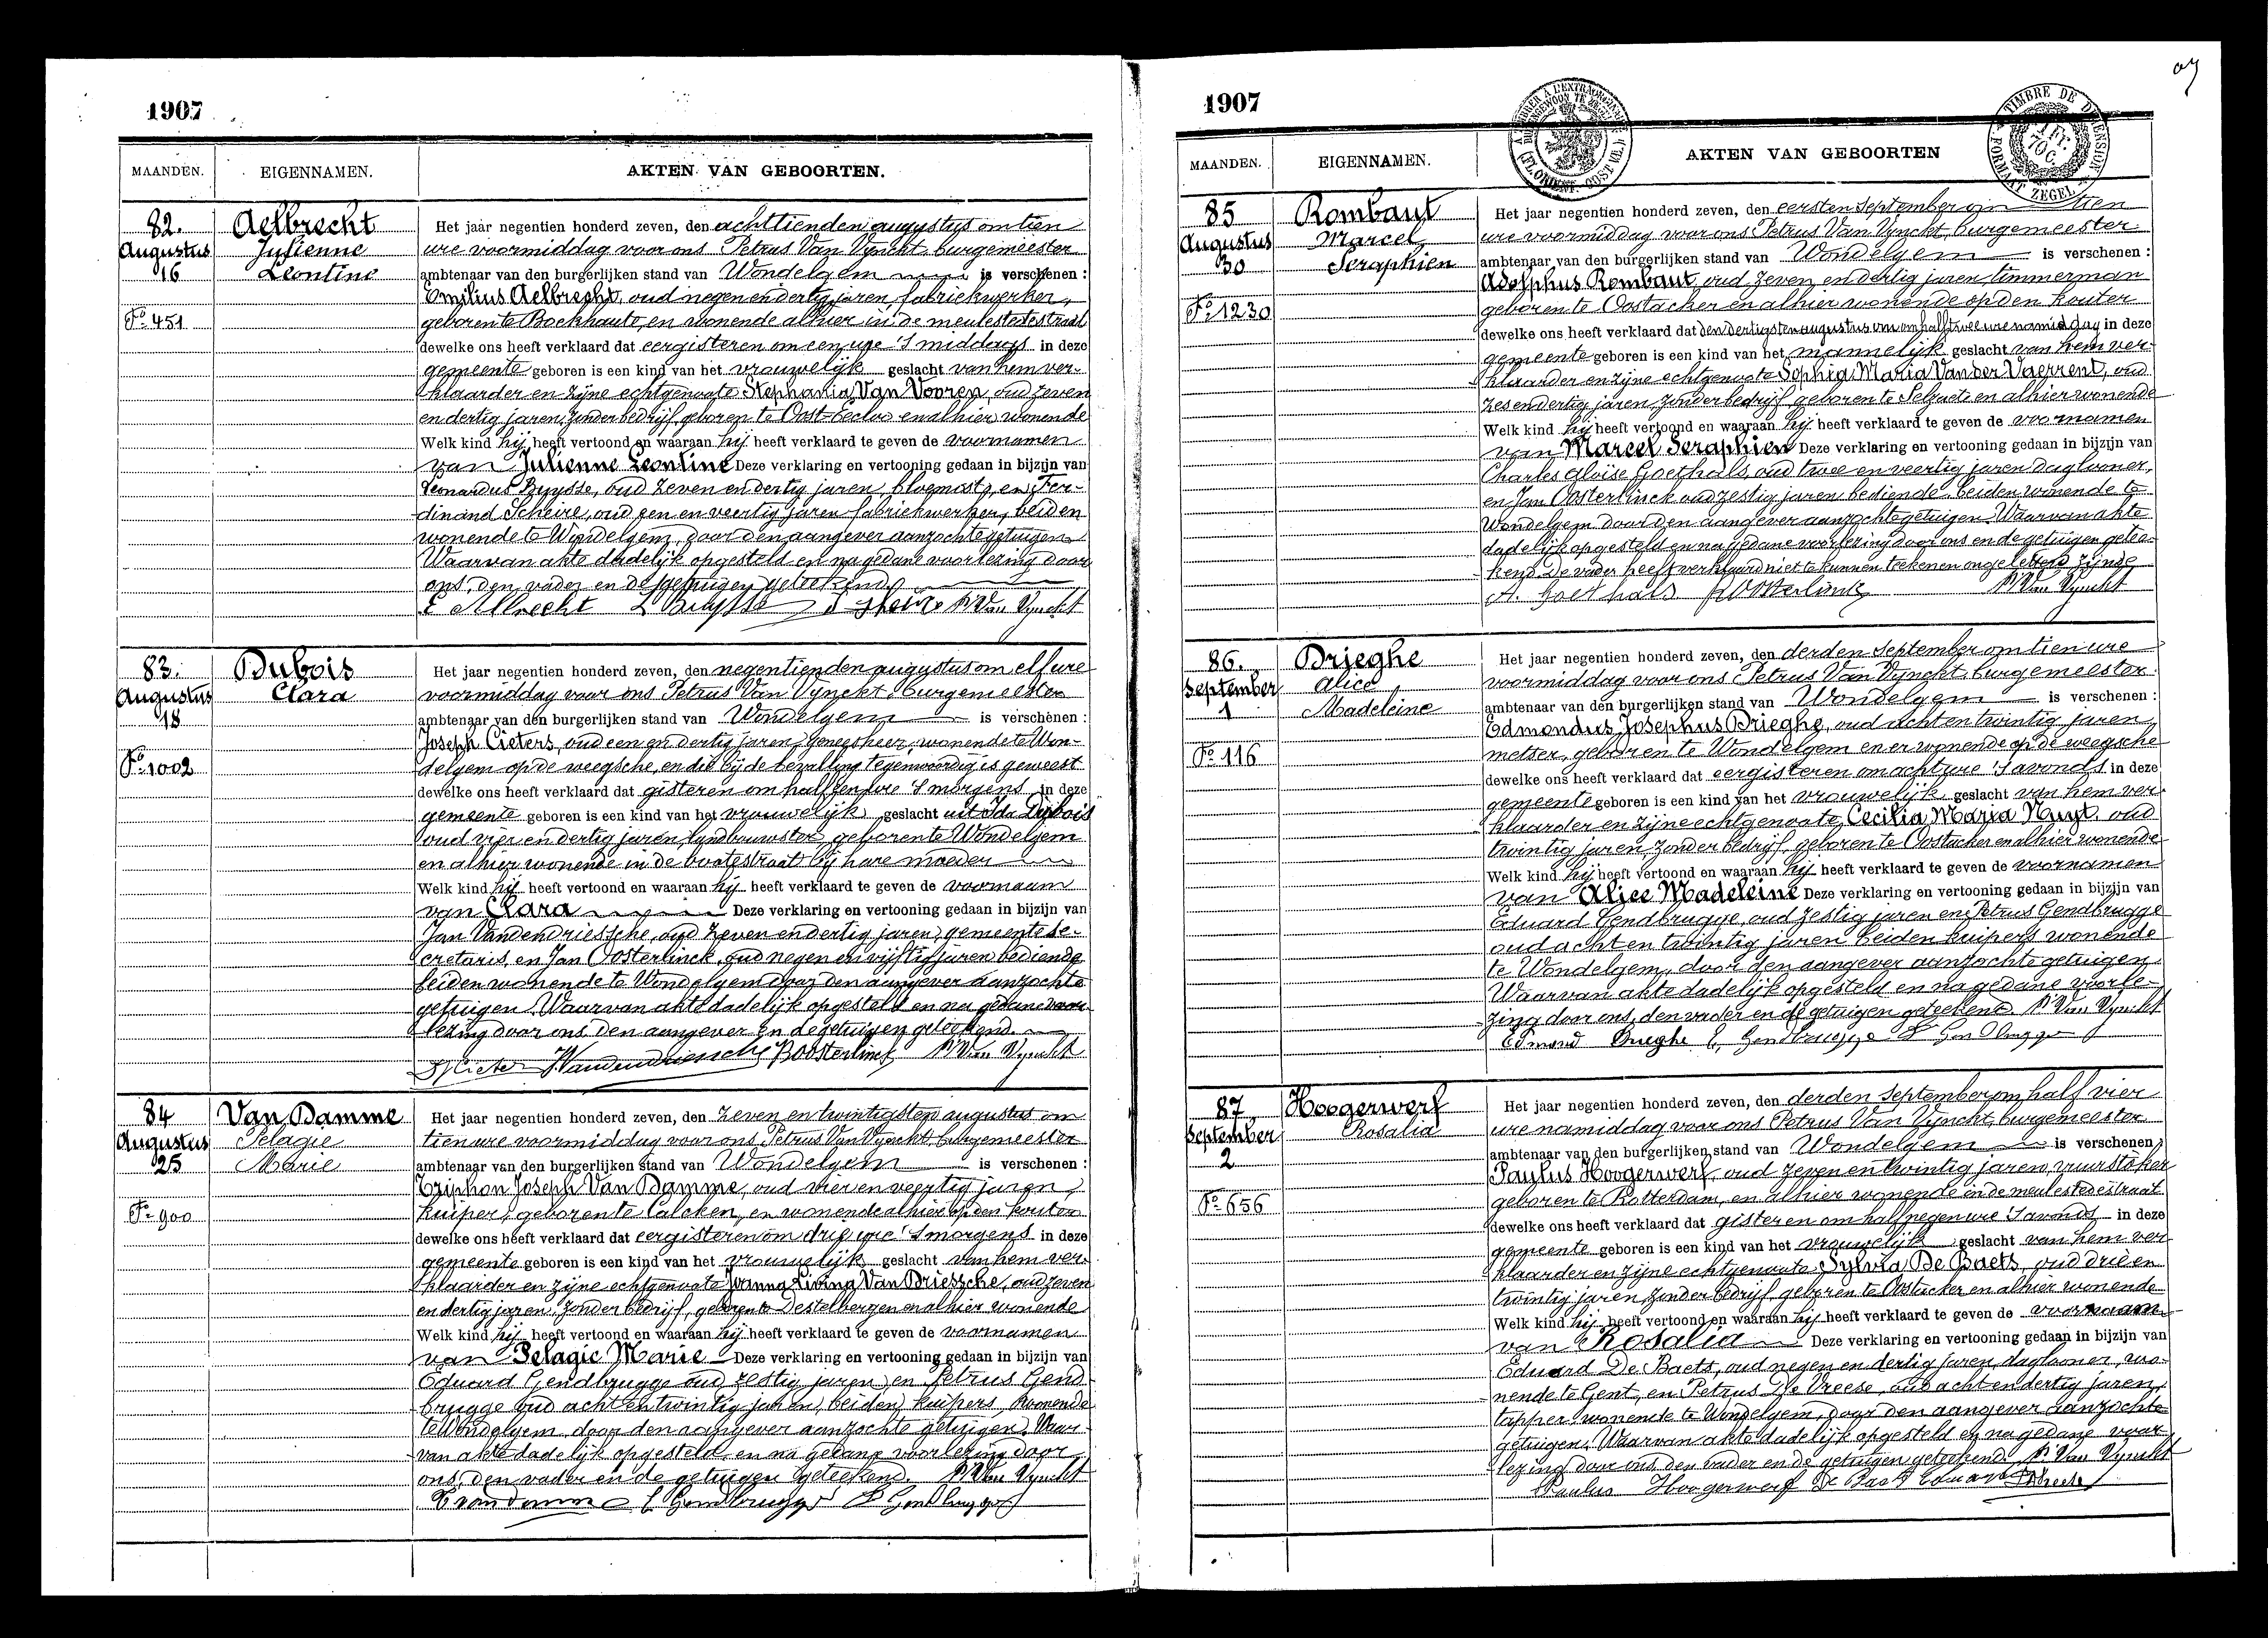 1907
MAANDEN. EIGENNAMEN. AKTEN VAN GEBOORTEN.
82.
Augustus
16
F.º 451
Aelbrecht
Julienne
Leontine
Het jaar negentien honderd zeven, den achttienden augustus om tien
ure voormiddag voor ons Petrus Van Vynckt, burgemeester
ambtenaar van den burgerlijken stand van Wondelgem is verschenen :
Emilius Aelbrecht, oud negen en dertig jaren, fabriekwerker,
geboren te Bockhaute, en wonende alhier in de meulestedestraat
dewelke ons heeft verklaard dat eergisteren om een ure 's middags in deze
gemeente geboren is een kind van het vrouwelijk geslacht van hem ver-
klaarder en zijne echtgenoote Stephania Van Vooren, oud zeven
en dertig jaren, zonder bedrijf, geboren te Oost-Eecloo en alhier wonende
Welk kind hij heeft vertoond en waaraan hij heeft verklaard te geven de voornamen
van Julienne Leontine Deze verklaring en vertooning gedaan in bijzijn van
Leonardus Buysse, oud zeven en dertig jaren, bloemist, en Fer-
dinand Scheire, oud een en veertig jaren fabriekwerker, beiden
wonende te Wondelgem, door den aangever aanzochte getuigen
Waarvan akte dadelijk opgesteld en na gedane voorlezing door
ons, den vader en de getuigen geteekend.
E Aelbrecht L Buysse F Scheire P. Van Vynckt
83.
Augustus
18
F.º 1002
Dubois
Clara
Het jaar negentien honderd zeven, den negentienden augustus om elf ure
voormiddag voor ons Petrus Van Vynckt burgemeester
ambtenaar van den burgerlijken stand van Wondelgem is verschenen :
Joseph Cieters, oud een en dertig jaren, geneesheer, wonende te Won-
delgem op de weegsche, en die bij de bevalling tegenwoordig is geweest
dewelke ons heeft verklaard dat gisteren om half een ure 's morgens in deze
gemeente geboren is een kind van het vrouwelijk geslacht uit Ida Dubois
oud vier en dertig jaren, landbouwster, geboren te Wondelgem
en alhier wonende in de vootestraat bij hare moeder
Welk kind hij heeft vertoond en waaraan hij heeft verklaard te geven de voornaam
van Clara Deze verklaring en vertooning gedaan in bijzijn van
Jan Vandendriessche, oud zeven en dertig jaren, gemeente se-
cretaris, en Jan Oosterlinck, oud negen en vijftig jaren bediende
beiden wonende te Wondelgem door den aangever aanzochte
getuigen. Waarvan akte dadelijk opgesteld en na gedane voor-
lezing door ons, den aangever en de getuigen geteekend.
J Cieters Vandendriessche Oosterlinck P. Van Vynckt
84
Augustus
25
F.º 900
Van Damme
Pelagie
Marie
Het jaar negentien honderd zeven, den zeven en twintigsten augustus om
tien ure voormiddag voor ons Petrus Van Vynckt, burgemeester
ambtenaar van den burgerlijken stand van Wondelgem is verschenen :
Triphon Joseph Van Damme, oud vier en veertig jaren,
kuiper, geboren te Calcken, en wonende alhier op den kouter
dewelke ons heeft verklaard dat eergisteren om drie ure 's morgens in deze
gemeente geboren is een kind van het vrouwelijk geslacht van hem ver-
klaarder en zijne echtgenoote Joanna Livina Van Driessche, oud zeven
en dertig jaren, zonder bedrijf, geboren te Destelbergen en alhier wonende
Welk kind hij heeft vertoond en waaraan hij heeft verklaard te geven de voornamen
van Pelagie Marie Deze verklaring en vertooning gedaan in bijzijn van
Eduard Gendbrugge oud zestig jaren en Petrus Gend-
brugge oud acht en twintig jaren, beiden kuipers, wonende
te Wondelgem, door den aangever aanzochte getuigen. Waar-
van akte dadelijk opgesteld en na gedane voorlezing door
ons, den vader en de getuigen geteekend. P. Van Vynckt
T vandamme E Gendbrugge P Gendbrugge
1907
MAANDEN. EIGENNAMEN. AKTEN VAN GEBOORTEN
TIMBRE DE DIMENSION
1 FR. 70 C.
FORMAAT ZEGEL
85
Augustus
30
F.º 1230
Rombaut
Marcel
Seraphien
Het jaar negentien honderd zeven, den eersten september om tien
ure voormiddag voor ons Petrus Van Vynckt, burgemeester
ambtenaar van den burgerlijken stand van Wondelgem is verschenen :
Adolphus Rombaut, oud zeven en dertig jaren timmerman
geboren te Oostacker en alhier wonende op den kouter
dewelke ons heeft verklaard dat den dertigsten augustus om om half twee ure namiddag in deze
gemeente geboren is een kind van het mannelijk geslacht van hem ver-
klaarder en zijne echtgenoote Sophia Maria Van der Vaerrent, oud
zes en dertig jaren, zonder bedrijf, geboren te Selzaete en alhier wonende
Welk kind hij heeft vertoond en waaraan hij heeft verklaard te geven de voornamen
van Marcel Seraphien Deze verklaring en vertooning gedaan in bijzijn van
Charles Aloise Goethals, oud twee en veertig jaren dagloner,
en Jan Oosterlinck oud zestig jaren bediende, beiden wonende te
Wondelgem door den aangever aanzochte getuigen. Waarvan akte
dadelijk opgesteld en na gedane voorlezing door ons en de getuigen getee-
kend. De vader heeft verklaard niet te kunnen teekenen ongeletterd zijnde
A. Goethals Oosterlinck P. Van Vynckt
86.
September
1
F.º 116
Drieghe
Alice
Madeleine
Het jaar negentien honderd zeven, den derden september om tien ure
voormiddag voor ons Petrus Van Vynckt, burgemeester
ambtenaar van den burgerlijken stand van Wondelgem is verschenen :
Edmondus Josephus Drieghe, oud acht en twintig jaren,
metser, geboren te Wondelgem en er wonende op de weegsche
dewelke ons heeft verklaard dat eergisteren om acht ure 's avonds in deze
gemeente geboren is een kind van het vrouwelijk geslacht van hem ver-
klaarder en zijne echtgenoote Cecilia Maria Nuyt, oud
twintig jaren zonder bedrijf, geboren te Oostacker en alhier wonende
Welk kind hij heeft vertoond en waaraan hij heeft verklaard te geven de voornamen
van Alice Madeleine Deze verklaring en vertooning gedaan in bijzijn van
Eduard Gendbrugge, oud zestig jaren en Petrus Gendbrugge
oud acht en twintig jaren beiden kuipers wonende
te Wondelgem, door den aangever aanzochte getuigen.
Waarvan akte dadelijk opgesteld en na gedane voorle-
zing door ons, den vader en de getuigen geteekend. P. Van Vynckt
Edmond Drieghe E, Gendbrugge P Gendbrugge
87
September
2
F.º 656
Hoogerwerf
Rosalia
Het jaar negentien honderd zeven, den derden september om half vier
ure namiddag voor ons Petrus Van Vynckt, burgemeester
ambtenaar van den burgerlijken stand van Wondelgem is verschenen :
Paulus Hoogerwerf, oud zeven en twintig jaren, vuurstoker
geboren te Rotterdam, en alhier wonende in de meulestedestraat
dewelke ons heeft verklaard dat gisteren om half negen ure 's avonds in deze
gemeente geboren is een kind van het vrouwelijk geslacht van hem ver-
klaarder en zijne echtgenoote Sylvia De Baets, oud drie en
twintig jaren, zonder bedrijf, geboren te Oostacker en alhier wonende
Welk kind hij heeft vertoond en waaraan hij heeft verklaard te geven de voornaam
van Rosalia Deze verklaring en vertooning gedaan in bijzijn van
Eduard De Baets, oud negen en dertig jaren, dagloner, wo-
nende te Gent, en Petrus De Vreese, oud acht en dertig jaren,
tapper, wonende te Wondelgem, door den aangever aanzochte
getuigen. Waarvan akte dadelijk opgesteld en na gedane voor-
lezing door ons, den vader en de getuigen geteekend. P. Van Vynckt
Paulus Hoogerwerf De Baets Eduard